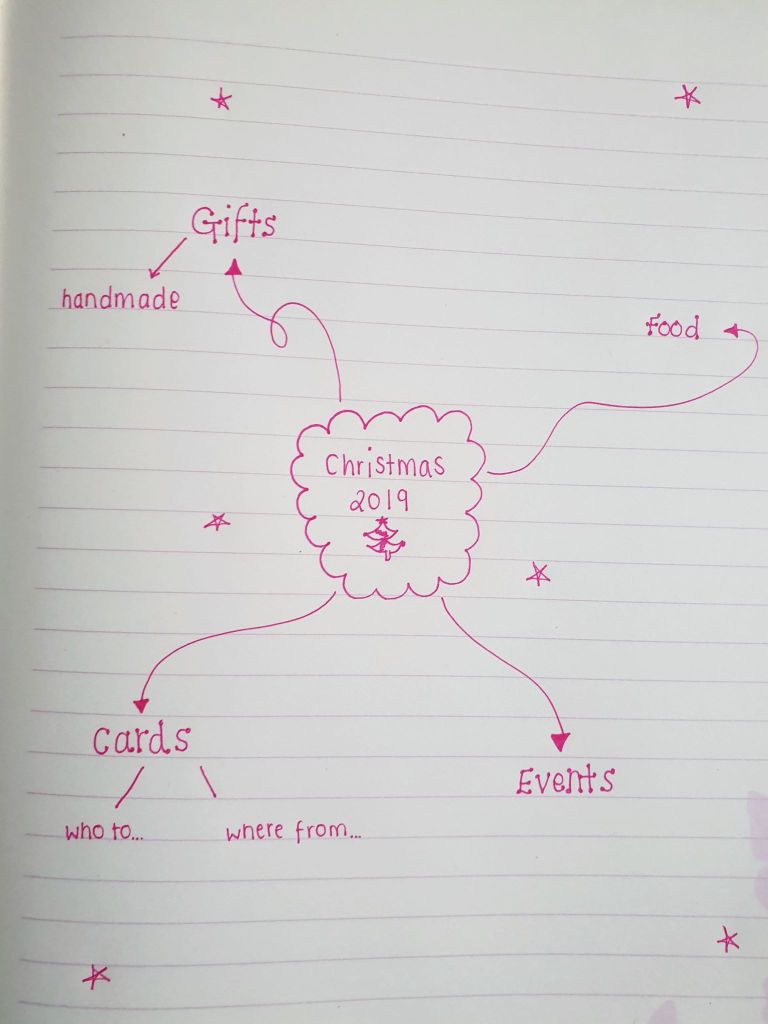 Gifts
handmade
Food
Christmas
2019
Cards
who to...
where from...
Events